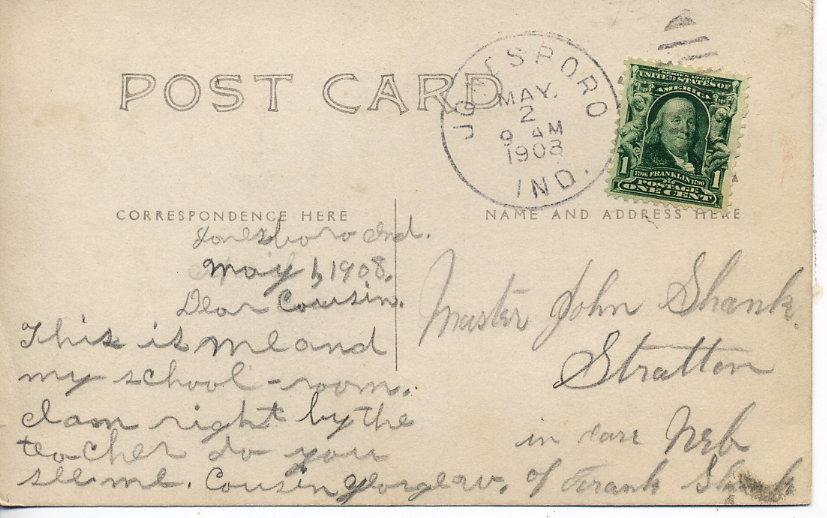 POST CARD
JONESBORO
MAY.
2
9 AM
1908
IND.
SERIES 1902
UNITED STATES OF
AMERICA
1706 FRANKLIN 1790
1 POSTAGE 1
ONE CENT
CORRESPONDENCE HERE
NAME AND ADDRESS HERE
Jonesboro Ind.
May 1, 1908.
Dear Cousin.
This is me and
my school-room.
I am right by the
teacher do you
see me. Cousin George W.
Master John Shank
Stratton
in care Neb
of Frank Shank